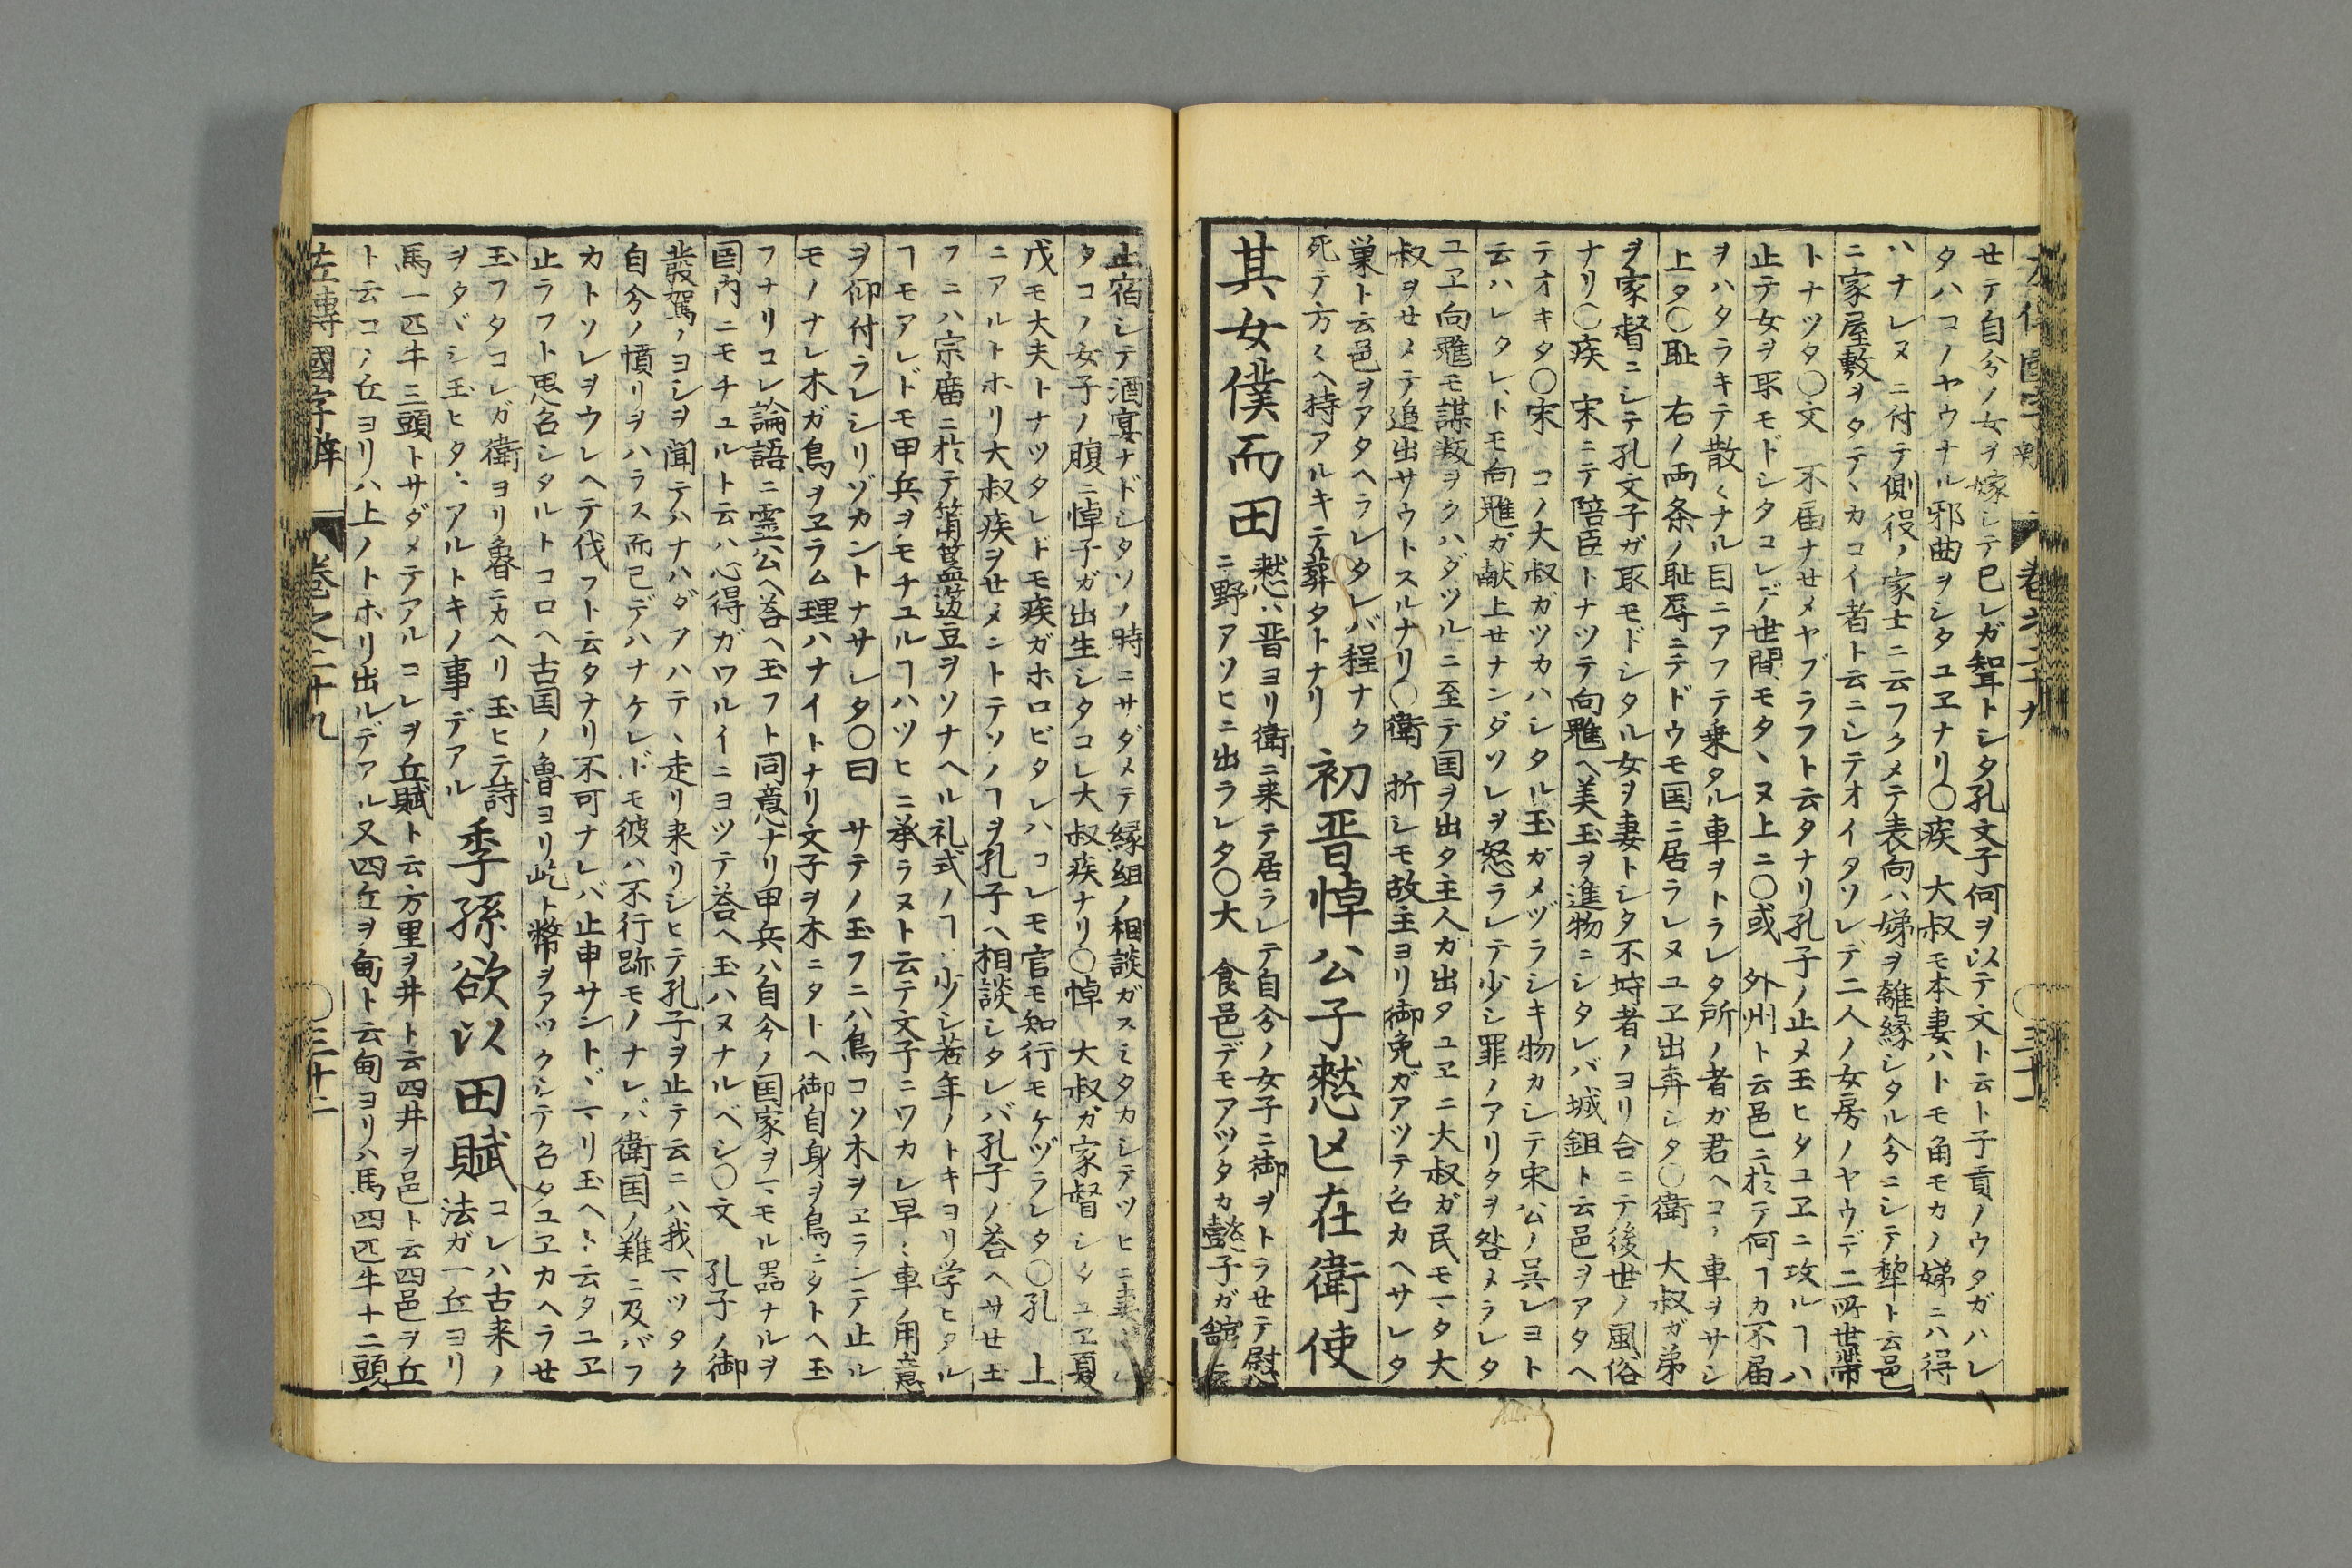 セテ自分ノ女ヲ嫁シテ已レガ聟トシタ孔文子何ヲ以テ文ト云ト子貢ノウタガハレ
タハコノヤウナル邪曲ヲシタユヱナリ〇疾　大叔モ本妻ハトモ角モカノ娣ニハ得
ハナレヌニ付テ側役ノ家士ニ云フクメテ表向ハ娣ヲ離縁シタル分ニシテ犂ト云邑
ニ家屋敷ヲタテヽカコイ者ト云ニシテオイタソレデ二人ノ女房ノヤウデ二所世帯
トナツタ〇文　不届ナセメヤブラフト云タナリ孔子ノ止メ玉ヒタユヱニ攻ルヿハ
止テ女ヲ取モドシタコレデ世間モタヽヌ上ニ〇或　外州ト云邑ニ於テ何ヿカ不届
ヲハタラキテ散〱ナル目ニアフテ乗タル車ヲトラレタ所ノ者ガ君ヘコノ車ヲサシ
上タ〇耻　右ノ両条ノ耻辱ニテドウモ国ニ居ラレヌユヱ出奔シタ〇衛　大叔ガ弟
ヲ家督ニシテ孔文子ガ取モドシタル女ヲ妻トシタ不埒者ノヨリ合ニテ後世ノ風俗
ナリ〇疾　宋ニテ陪臣トナツテ向魋ヘ美玉ヲ進物ニシタレバ城鉏ト云邑ヲアタヘ
テオキタ〇宋　コノ大叔ガツカハシタル玉ガメヅラシキ物カシテ宋公ノ呉レヨト
云ハレタレトモ向魋ガ献上セナンダソレヲ怒ラレテ少シ罪ノアリタヲ咎メラレタ
ユヱ向魋モ謀叛ヲクハダツルニ至テ国ヲ出タ主人ガ出タユヱニ大叔ガ民モ一タ大
叔ヲセメテ追出サウトスルナリ〇衛　折シモ故主ヨリ御免ガアツテ召カヘサレタ
巣ト云邑ヲアタヘラレタレバ程ナク
死テ方〱ヘ持アルキテ葬タトナリ
初晋悼公子憖亡在衛使
其女僕而田
憖ハ晋ヨリ衛ニ来テ居ラレテ自分ノ女子ニ御ヲトラセテ慰
ニ野アソヒニ出ラレタ〇大　食邑デモアツタカ懿子ガ舘
止宿シテ酒宴ナドシタソノ時ニサダメテ縁組ノ相談ガスミタカシテツヒニ妻
タコノ女子ノ腹ニ悼子ガ出生シタコレ大叔疾ナリ〇悼　大叔ガ家督シタユヱ夏
戊モ大夫トナツタレドモ疾ガホロビタレハコレモ官モ知行モケヅラレタ〇孔　上
ニアルトホリ大叔疾ヲセメントテソノヿヲ孔子ヘ相談シタレバ孔子ノ荅ヘサセ玉
フニハ宗廟ニ於テ簠簋籩豆ヲソナヘル礼式ノヿハ少シ若年ノトキヨリ学ヒタル
ヿモアレドモ甲兵ヲモチユルヿハツヒニ承ラヌト云テ文子ニワカレ早〻車ノ用意
ヲ仰付ラレシリゾカントナサレタ〇曰　サテノ玉フニハ鳥コソ木ヲヱランテ止ル
モノナレ木ガ鳥ヲヱラム理ハナイトナリ文子ヲ木ニタトヘ御自身ヲ鳥ニタトヘ玉
フナリコレ論語ニ霊公ヘ荅ヘ玉フト同意ナリ甲兵ハ自今ノ国家ヲマモル噐ナルヲ
国内ニモチユルト云ハ心得ガワルイニヨツテ荅ヘ玉ハヌナルベシ〇文　孔子ノ御
發駕ノヨシヲ聞テハナハダアハテヽ走リ来リシヒテ孔子ヲ止テ云ニハ我マツタク
自分ノ憤リヲハラス而已デハナケレドモ彼ハ不行跡モノナレバ衛国ノ難ニ及バフ
カトソレヲウレヘテ伐フト云タナリ不可ナレバ止申サントヾマリ玉ヘト云タユヱ
止ラフト思召シタルトコロヘ古国ノ魯ヨリ屹ト幣ヲアツクシテ召タユヱカヘラセ
玉フタコレガ衛ヨリ魯ニカヘリ玉ヒテ詩
ヲタヾシ玉ヒタヽアルトキノ事デアル
季孫欲以田賦
コレハ古来ノ
法ガ一丘ヨリ
馬一匹牛三頭トサダメテアルコレヲ丘賦ト云方里ヲ井ト云四井ヲ邑ト云四邑ヲ丘
ト云コノ丘ヨリハ上ノトホリ出ルデアル又四丘ヲ甸ト云甸ヨリハ馬四匹牛十二頭
左傳國字辯　卷之二十九　〇三十二